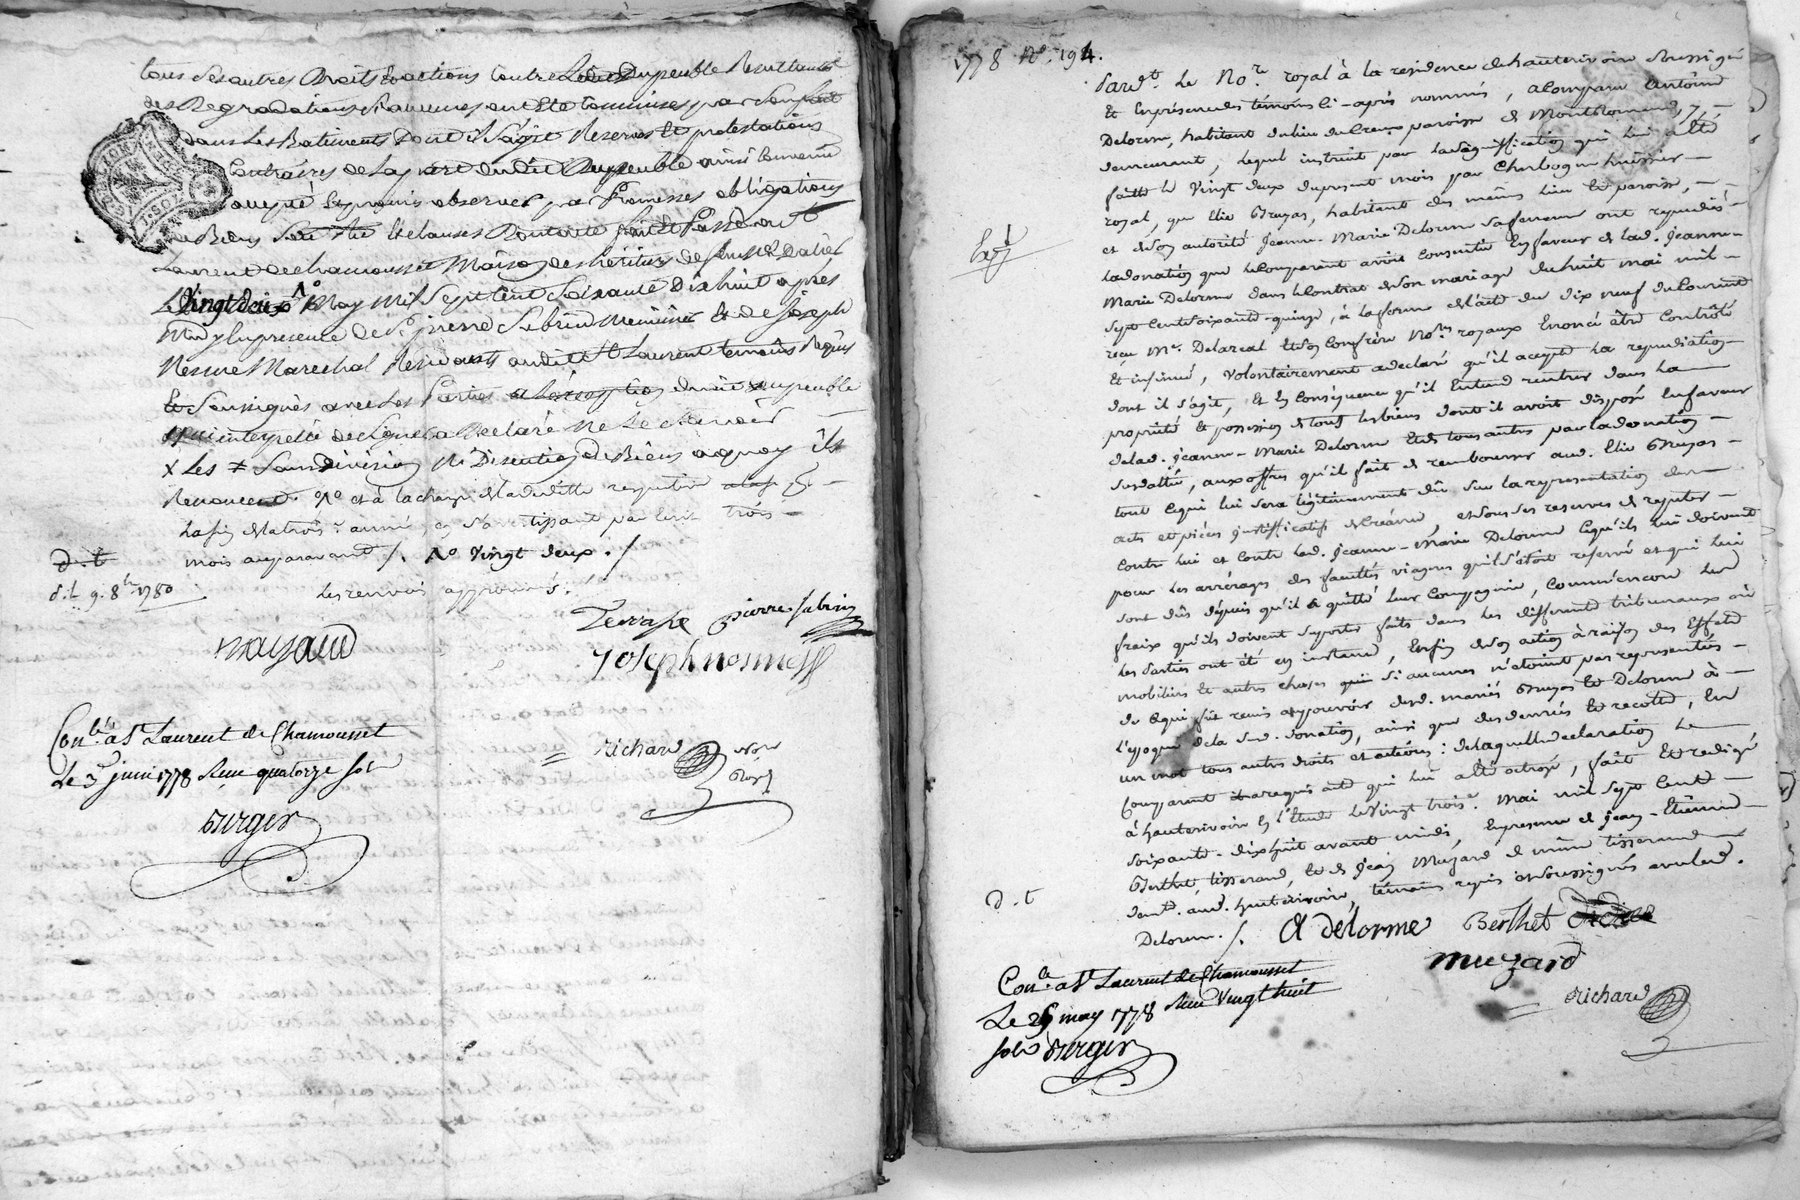 tous ses autres Droits & actions Contre Ledit Dupeuble Resultants
des Degradations
dans Les Batiments Dont il S'agit Reserves Et protestations
Contraires de La part dudit Dupeuble ainsi Convenu
accepté Et promis observer par Promesses obligations
de Biens Soumissions Et Clauses fait Et Passé au
Laurent de chamousset Maison des héritiers de
Le vingt deux May Mil Sept Cent Soixante Dix huit après
Midy En presence de Sr. pierre Sabrin Menuisier Et de Joseph
Nesme Marechal Residants audit St Laurent temoins Requis
Et Soussignés avec Les Parties dudit Dupeuble
qui interpellé de signer a Declaré Ne Le Scavoir
x Les Sans division Ni Discution de Biens a quoy ils
Renoncent. et à la charge
la fin de la trois.e année, en s'avertissant par écrit trois
mois auparavant /. No Vingt deux. /
d. t
d. t. 9. 8bre 1780
Les renvois approuvés.
Terrasse pierre Sabrin
Nayaud
Joseph nesme
Conlé à St Laurent de Chamousset
Le 3 juin 1778 Reçu quatorze sols
Richard Nore Royal
Burger
1778 No. 194.
Pard.t Le No.re royal à la residence de hauterivoire soussigné
Et En présence des témoins ci-après nommés, a comparu Antoine
Delorme, habitant du lieu du Creux paroisse de Montromand, y
demeurant, lequel instruit par la signification qui lui a été
faitte le Vingt deux du present mois par Charbogne huissier
royal, que Elie Bruyas, habitant des mêmes lieu Et paroisse,
et de son autorité Jeanne-Marie Delorme sa femme ont repudié
la donation que le Comparant avoit Consentie En faveur de lad. Jeanne-
Marie Delorme dans le Contrat de son mariage du huit mai mil
Sept Cent soixante-quinze, à la forme de l'acte du dix neuf du Courant
reçu Me. Delareal Et son Confrère Nores royaux Enoncé être Contrôlé
Et insinué, Volontairement a declaré qu'il accepte La repudiation
dont il s'agit, Et En Conséquence qu'il Entend rentrer dans La
propriété Et possession de tous les biens dont il avoit disposé En faveur
de lad. Jeanne-Marie Delorme Et de tous autres par la donation
susdattée, aux offres qu'il fait de rembourser aud. Elie Bruyas
tout Ce qui lui sera légitimement dû sur la representation des
acts et piéces justificatifs de Créance, et sous ses reserves de repeter
Contre lui et Contre lad. Jeanne-Marie Delorme Ce qu'ils lui doivent
pour les arrérages des facultés viageres qu'il s'étoit reservé et qui lui
sont dûs depuis qu'il a quitté leur Compagnie, Comme encore les
fraix qu'ils doivent suporter faits dans les differents tribunaux où
les parties ont été En instance, Enfin de son action à raison des Effets
mobiliers Et autres choses qui si aucunes n'etoient pas representés
de Ce qui fût remis au pouvoir desd. mariés Bruyas Et Delorme à
l'époque de la susd. donation, ainsi que des denrées Et recoltes, En
un mot tous autres droits et actions : de la quelle declaration Le
Comparant a requis acte qui lui a été octroyé, fait Et redigé
à hauterivoire En l'Etude Le Vingt trois.e Mai mil sept Cent
soixante-dix huit avant midi, En presence de Jean-Etienne
Berthet, tisserand, Et de Jean Muzard de même tisserand
demt. aud. hauterivoire, témoins requis et soussignés avec led.
Delorme. /.
d. t
A delorme Berthet
muzard
Conlé à St Laurent de Chamousset
Le 25 may 1778 Reçu Vingt huit
sols Burger
Richard